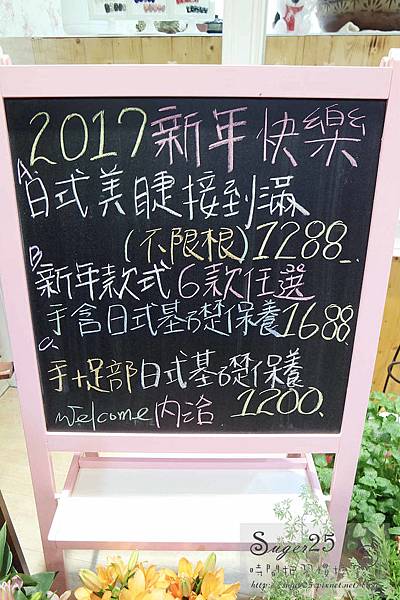 2017新年快樂
A 日式美睫接到滿
(不限根)1288.
B 新年款式6款任選
手含日式基礎保養1688.
C. 手+足部日式基礎保養
welcome 內洽 1200.
Suger25